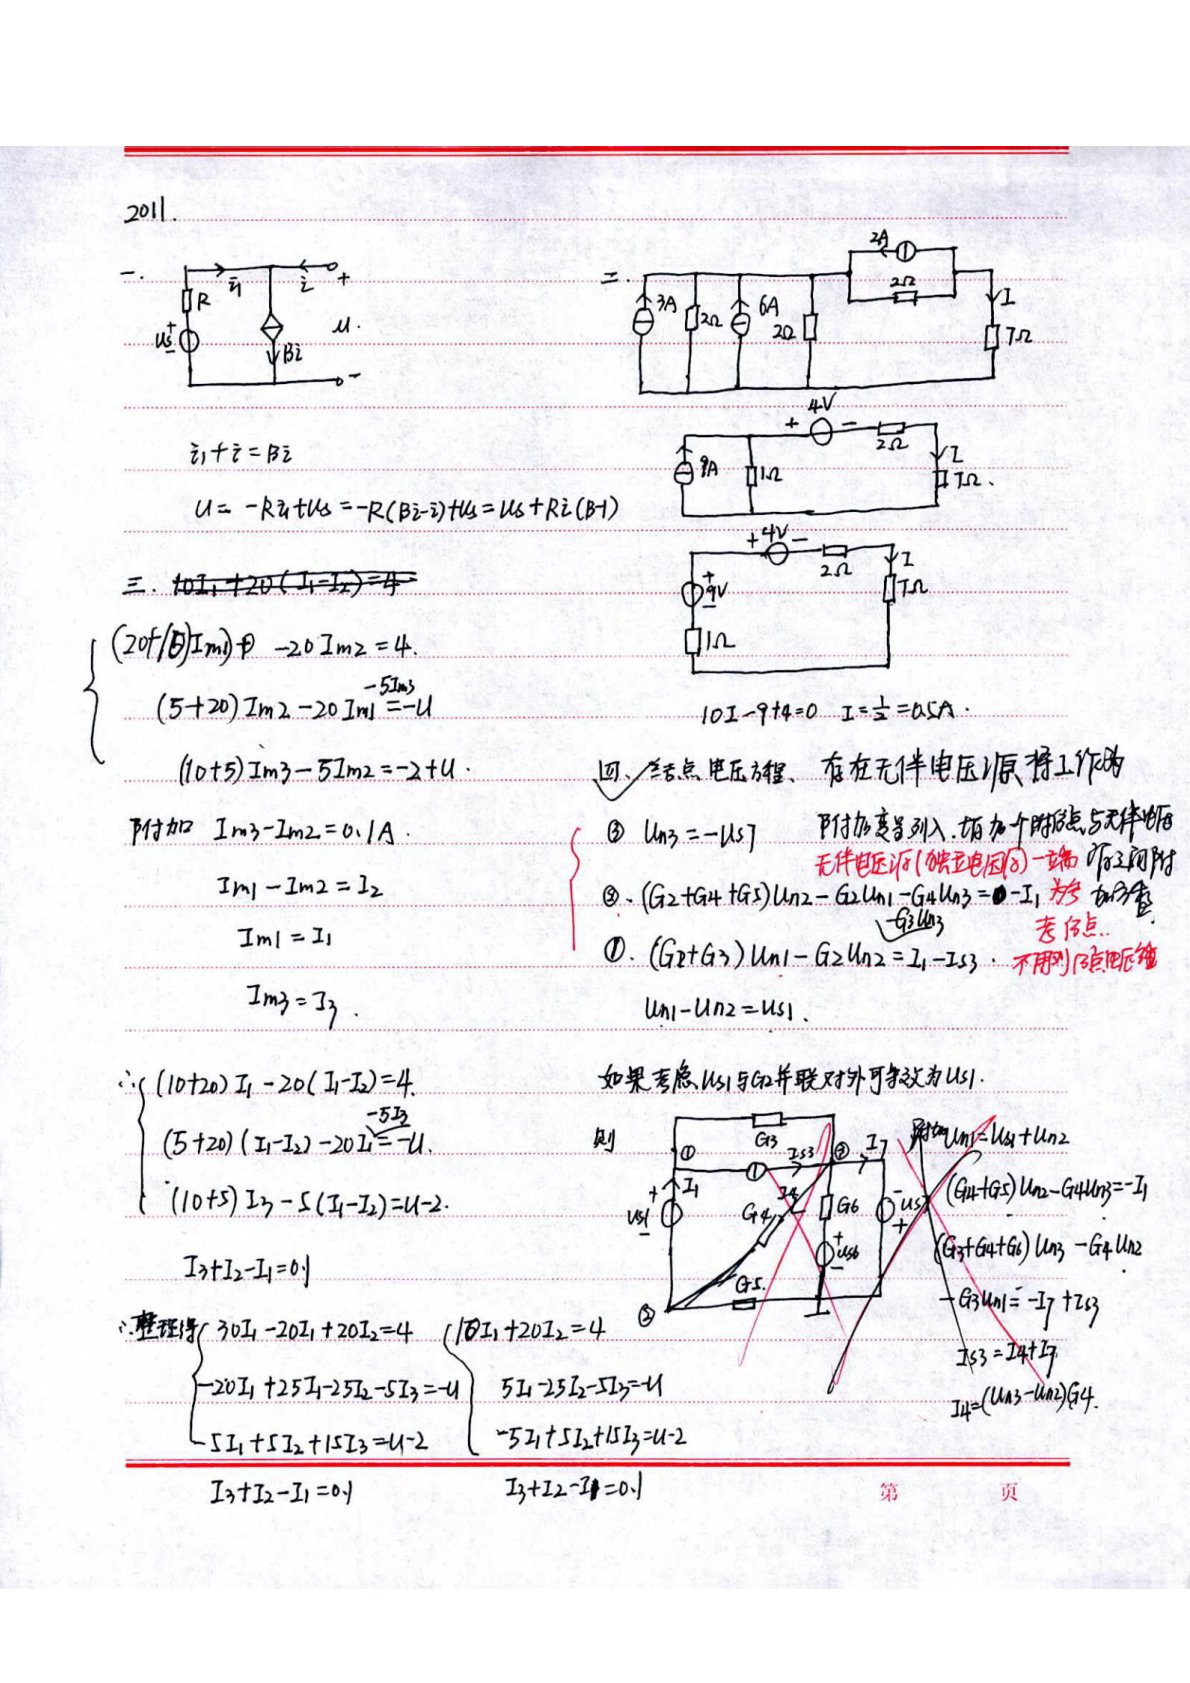 2011.
一.
R
i₁
i
+
us
+
−
Bi
u.
−
i₁+i=Bi
u= -Ri₁+us=-R(Bi-i)+us=us+Ri(B-1)
二.
2A
2Ω
3A
2Ω
6A
2Ω
I
7Ω
+ 4V −
2Ω
9A
1Ω
I
7Ω.
+4V−
2Ω
I
+
9V
−
7Ω
1Ω
10I-9+4=0 I=½=0.5A.
三. 10I₁+20(I₁-I₂)=4
(20+10)Im1 -20Im2=4.
-5Im3
(5+20)Im2-20Im1=-U
(10+5)Im3-5Im2=-2+U.
附加 Im3-Im2=0.1A.
Im1-Im2=I₂
Im1=I₁
Im3=I₃.
∴ (10+20)I₁-20(I₁-I₂)=4.
-5I₃
(5+20)(I₁-I₂)-20I₁=-U.
(10+5)I₃-5(I₁-I₂)=U-2.
I₃+I₂-I₁=0.1
∴整理得 30I₁-20I₁+20I₂=4
-20I₁+25I₁-25I₂-5I₃=-U
-5I₁+5I₂+15I₃=U-2
I₃+I₂-I₁=0.1
10I₁+20I₂=4
5I₁-25I₂-5I₃=-U
-5I₁+5I₂+15I₃=U-2
I₃+I₂-I₁=0.1
四. 结点电压方程. 存在无伴电压源 将工作为
附加变量列入.
③ Un3=-Us7
无伴电压源(独立电压源)一端
为参
考结点..
不用列结点电压方程
② . (G2+G4+G5)Un2-G2Un1-G4Un3=-I₁
-G3Un3
①. (G2+G3)Un1-G2Un2=I₁-Is3.
Un1-Un2=Us1.
如果考虑Us1与G2并联对外可等效为Us1.
则
G3
①
Is3
②
I7
+
I₁
us1
−
G4
I4
G6
−
us7
+
+
us6
−
G5.
③
附加 Un1=Us1+Un2
(G4+G5)Un2-G4Un3=-I₁
(G3+G4+G6)Un3-G4Un2
-G3Un1=-I7+Is3
Is3=I4+I7
I4=(Un3-Un2)G4.
第 页